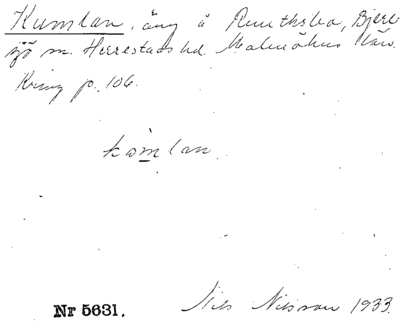 Kumlan, äng å Ruuthsbo, Bjere
sjö sn. Herrestads hd. Malmöhus län.
Kring p. 106.
kömlan
Nr 5631.
Nils Nilsson 1933.